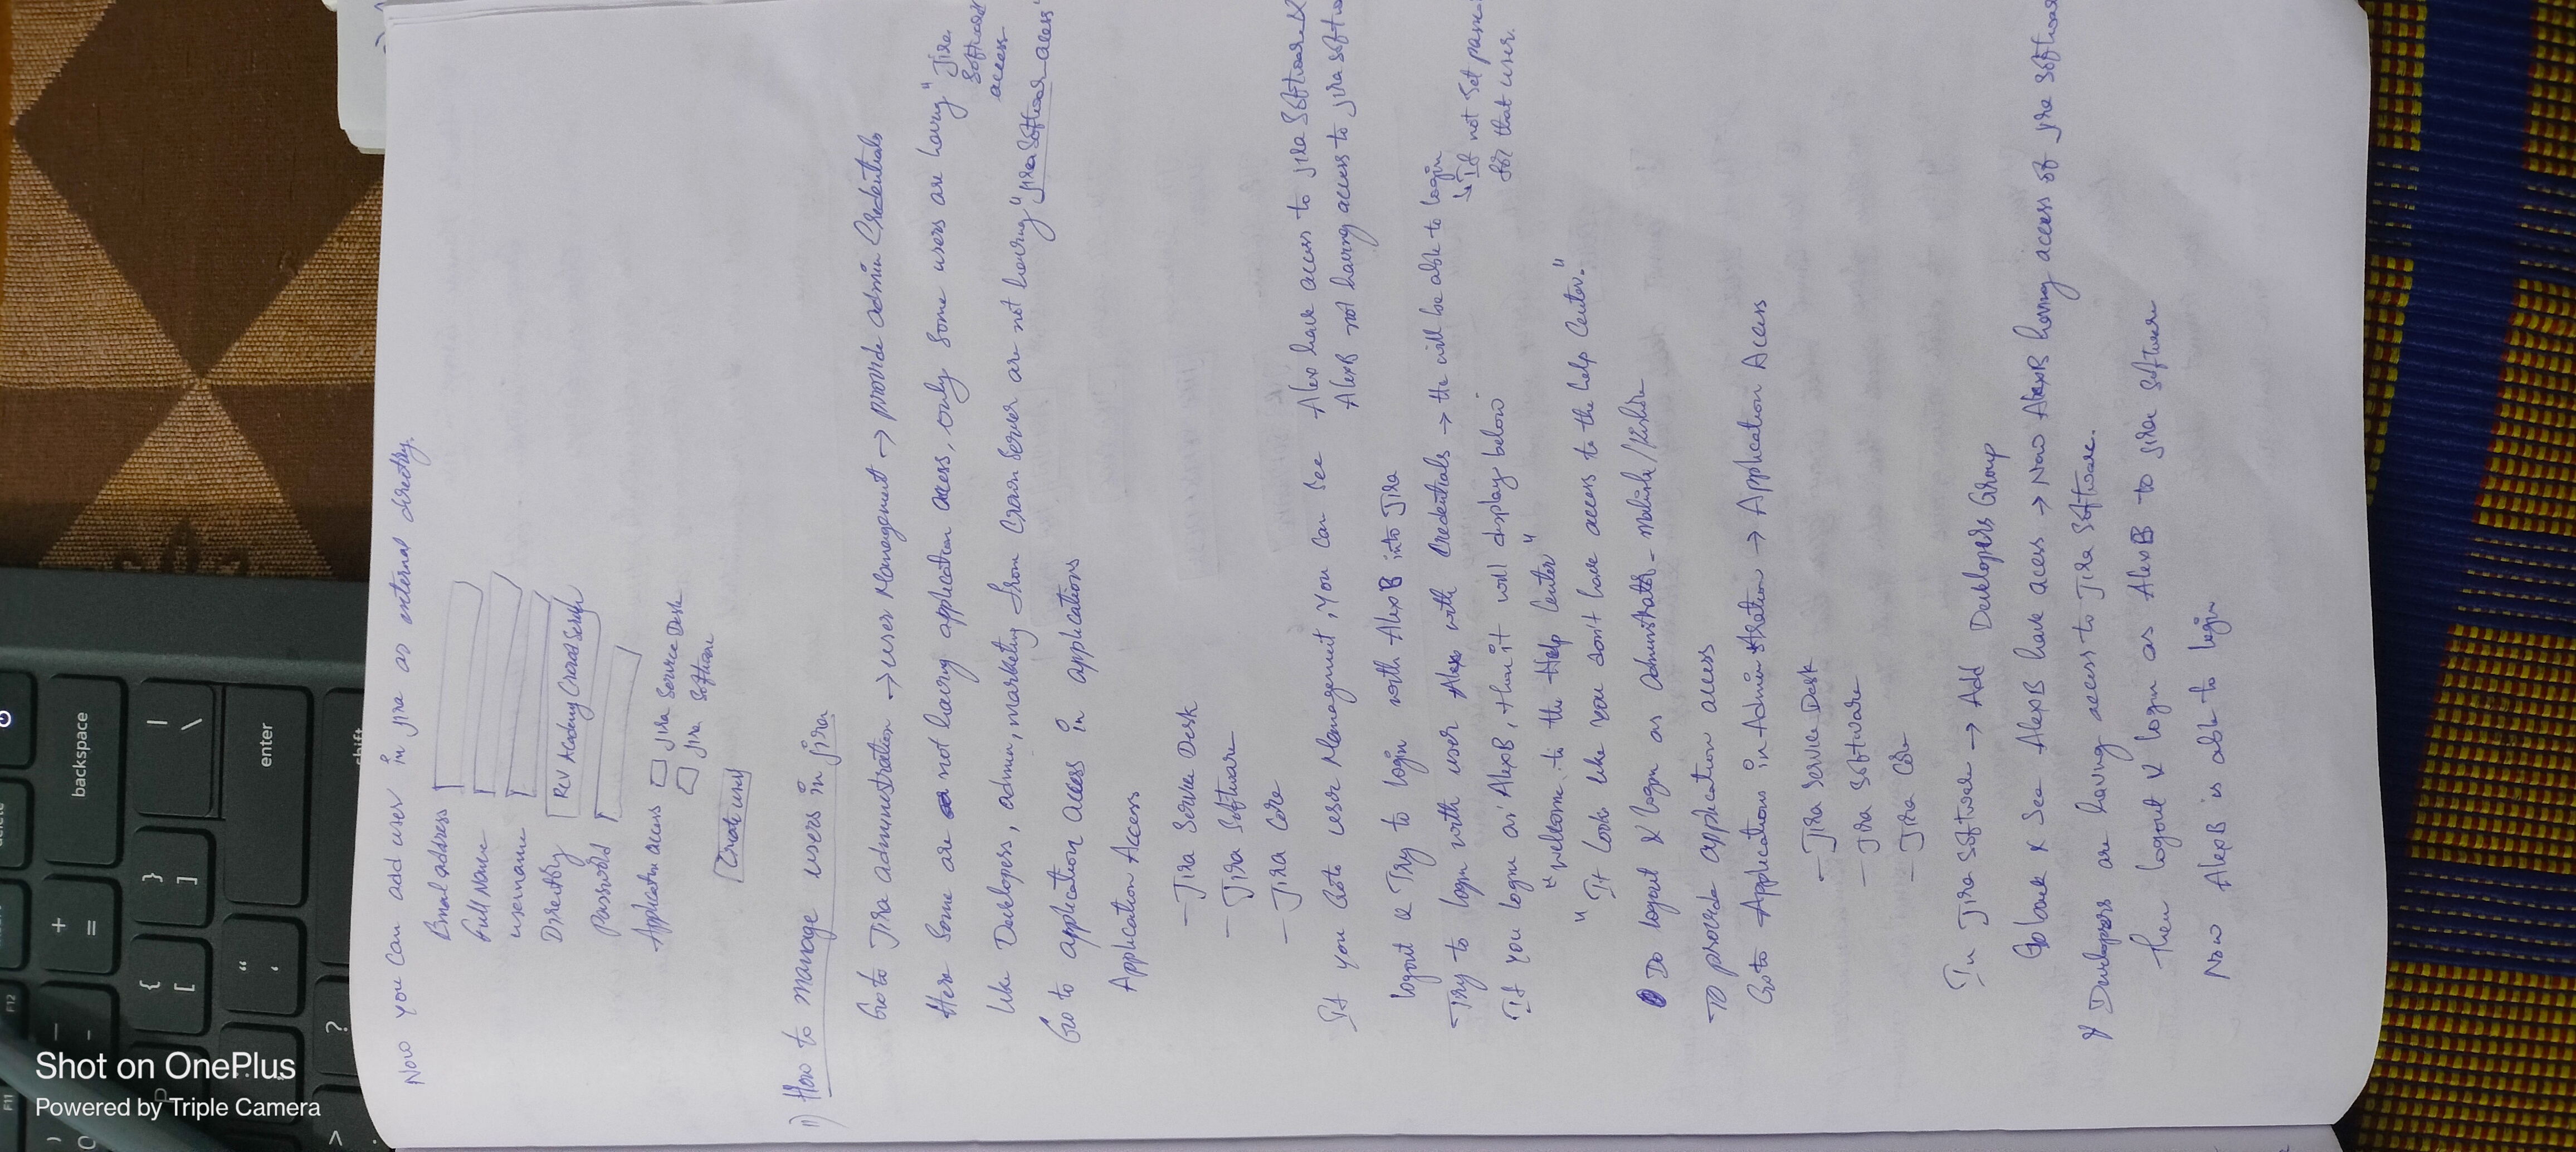 F11
F12
delete
+
=
backspace
{
[
}
]
|
\
"
'
enter
?
shift
Shot on OnePlus
Powered by Triple Camera
Now you Can add user in jira as external directory.
Email address
Full Name
username
Directory RCV Academy Crowd Server
Password
Application access Jira Service Desk
Jira Software
Create user
11) How to manage users in jira
Go to Jira administration → user Management → provide admin Credentials
Here Some are not having application access, only Some users are having " Jira
Software
access
like Developers, admin, marketing from Crown Server are not having "jira Software acess"
Go to application access in applications
Application Access
- Jira Service Desk
- Jira Software
- Jira Core
If you Goto user Management, you Can See Alex have access to jira Software &
AlexB not having access to jira softw
logout & Try to login with AlexB into Jira
Try to login with user Alex with Credentials → He will be able to login
↳ If not Set passw
for that user.
If you login as AlexB, then it will display below
"Welcome to the Help Center"
"It Looks like you don't have access to the help Center."
Do logout & login as Administrator -
To provide application access
Goto Applications in Administration → Application Access
- Jira Service Desk
- Jira Software
- Jira Core
In Jira Software → Add Developers Group
Go back & See AlexB have acess → Now AlexB having access of jira Softwar
& Developers are having access to Jira Software.
Then logout & login as AlexB to jira Software
Now AlexB is able to login